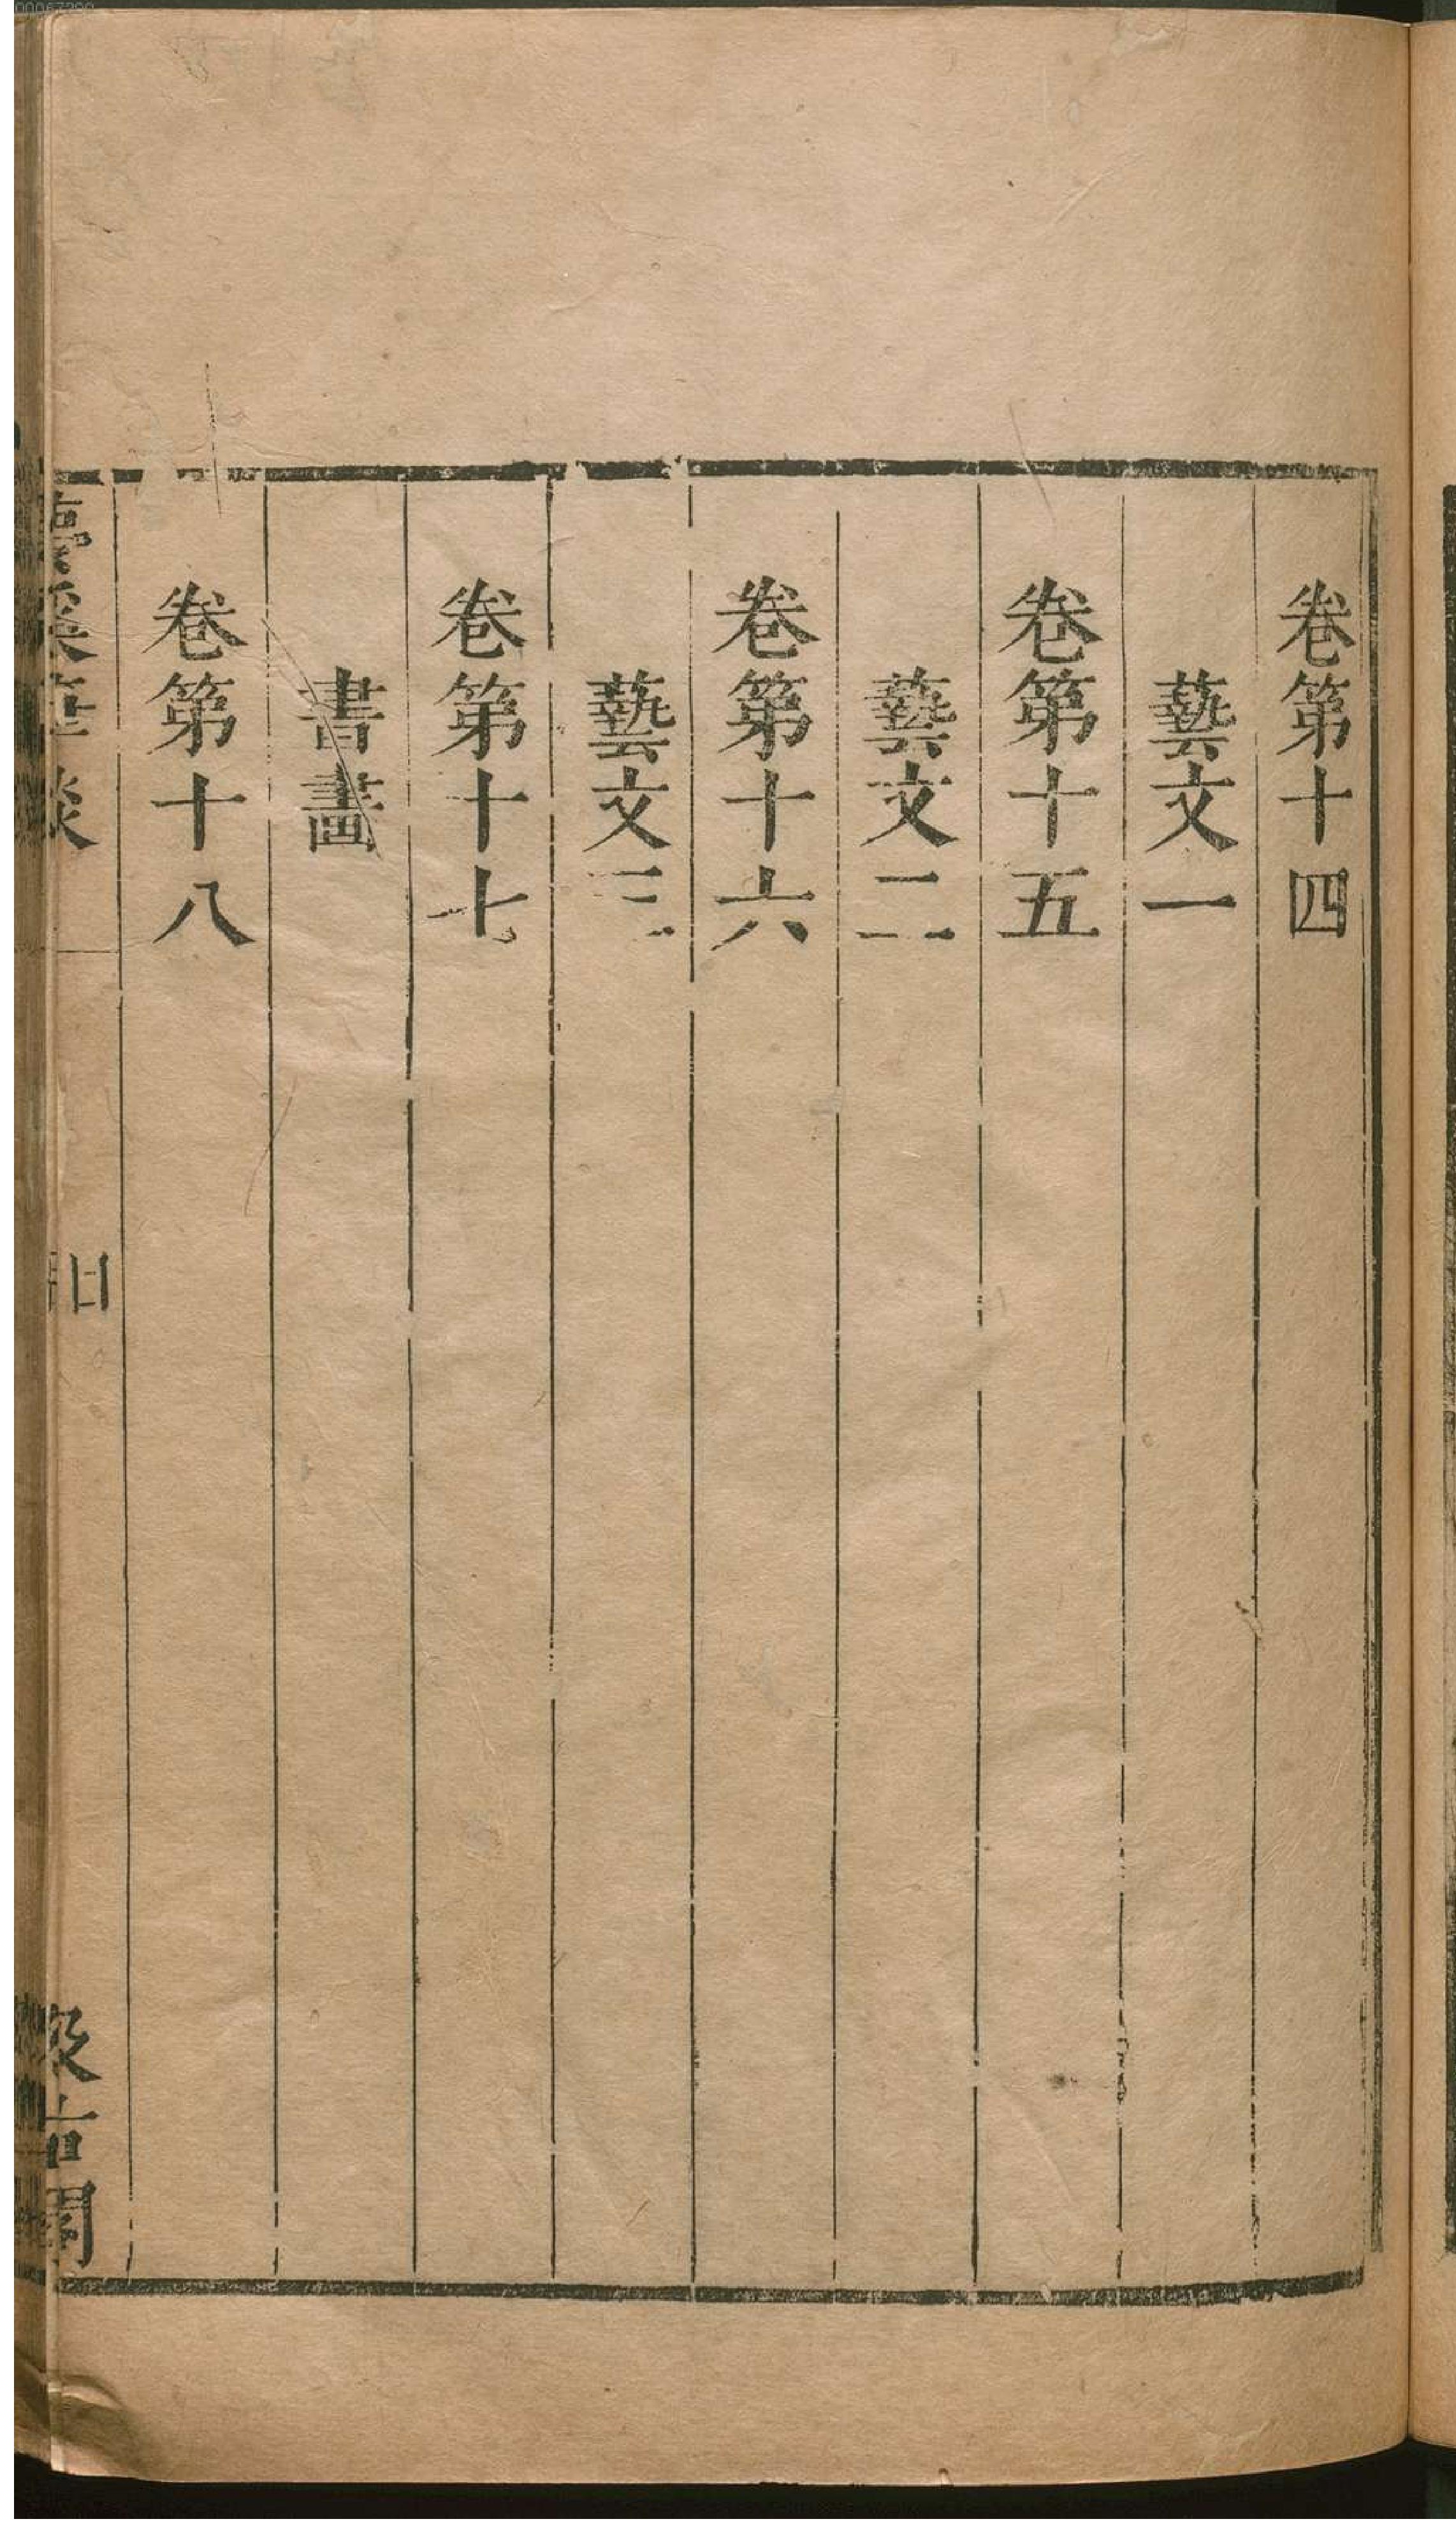 卷第十四
藝文一
卷第十五
藝文二
卷第十六
藝文三
卷第十七
書畫
卷第十八
夢溪筆談
汲古閣